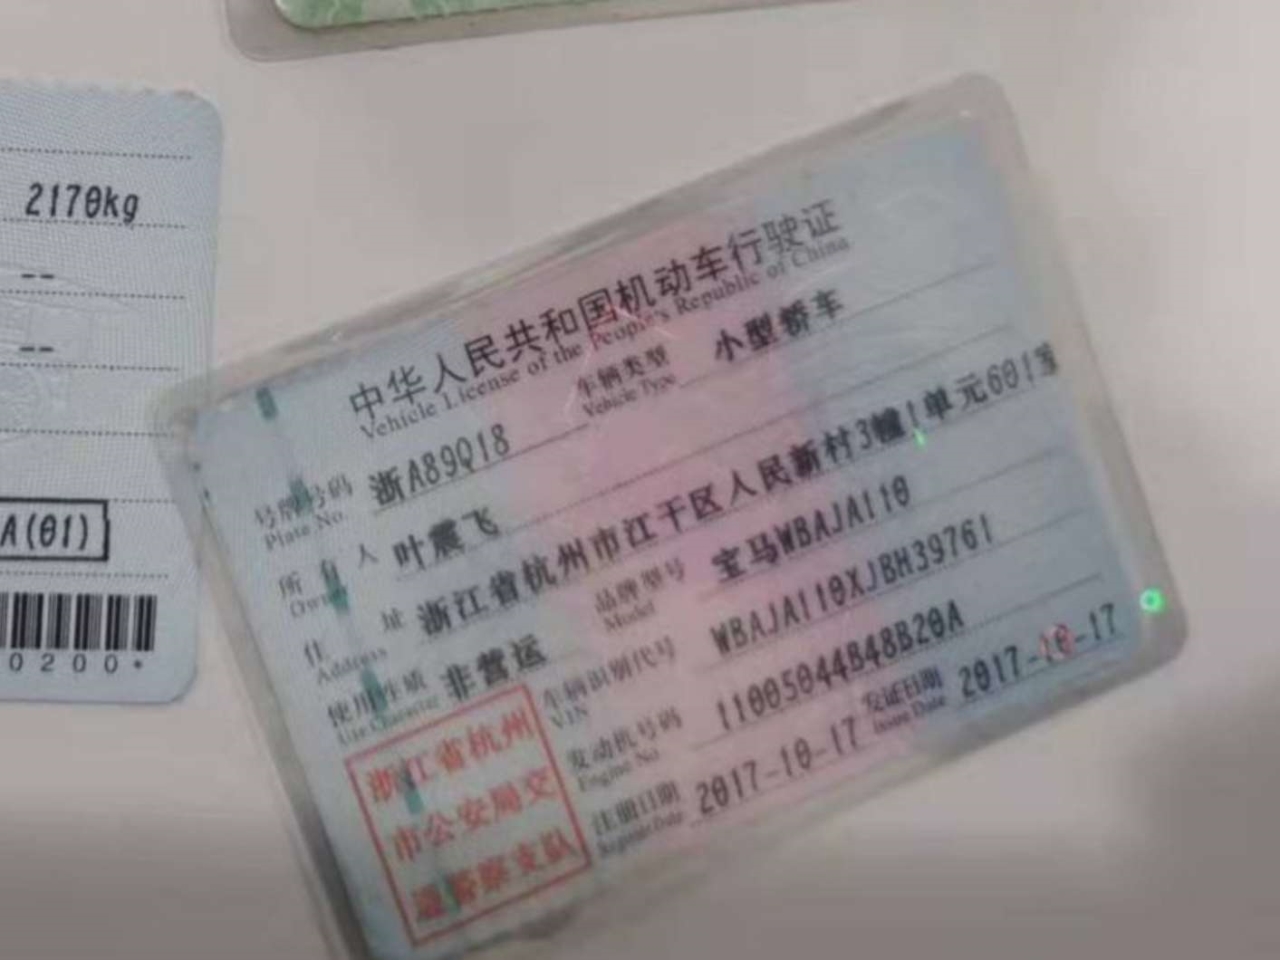 2170kg
--
--
A(01)
0200*
中华人民共和国机动车行驶证
Vehicle License of the People's Republic of China
号牌号码 浙A89Q18 车辆类型 小型轿车
Plate No. Vehicle Type
所有人 叶震飞
Owner
住址 浙江省杭州市江干区人民新村3幢1单元601室
Address
使用性质 非营运 品牌型号 宝马WBAJA110
Use Character Model
车辆识别代号 WBAJA110XJBH39761
VIN
发动机号码 11005044B48B20A
Engine No.
注册日期 2017-10-17 发证日期 2017-10-17
Register Date Issue Date
浙江省杭州
市公安局交
通警察支队